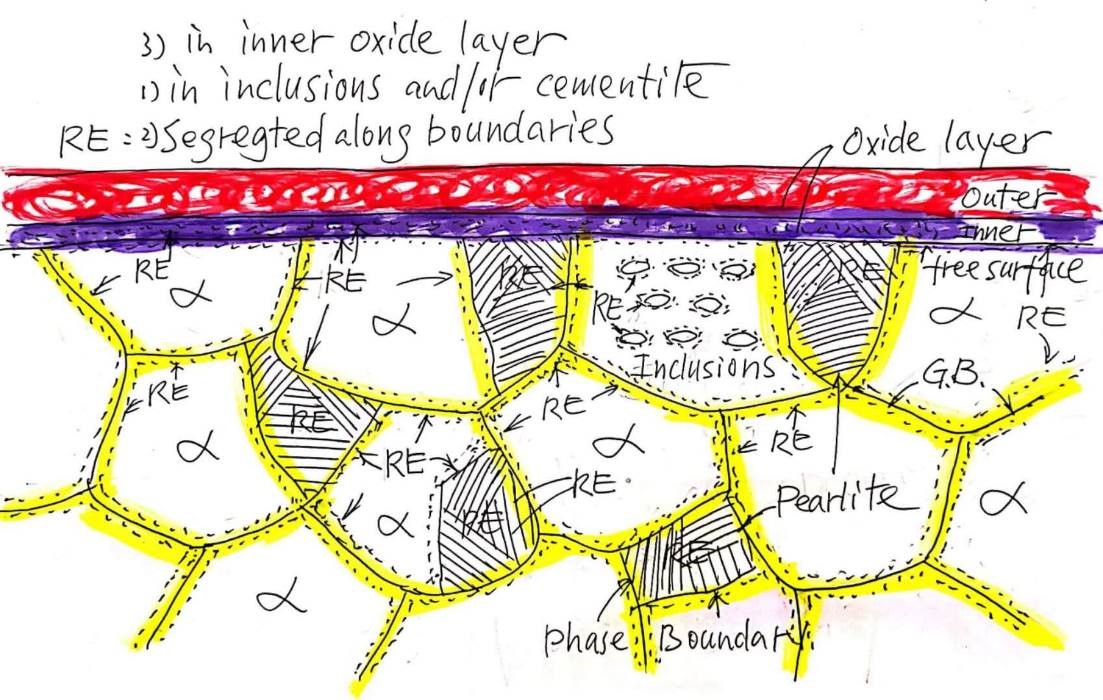 3) in inner oxide layer
1) in inclusions and/or cementite
RE = 2) Segregted along boundaries
Oxide layer
Outer
inner
free surface
RE
RE
RE
RE
RE
α
α
RE
α
RE
Inclusions
G.B.
RE
RE
RE
α
RE
α
RE
RE
α
RE
Pearlite
α
RE
RE
α
Phase Boundary